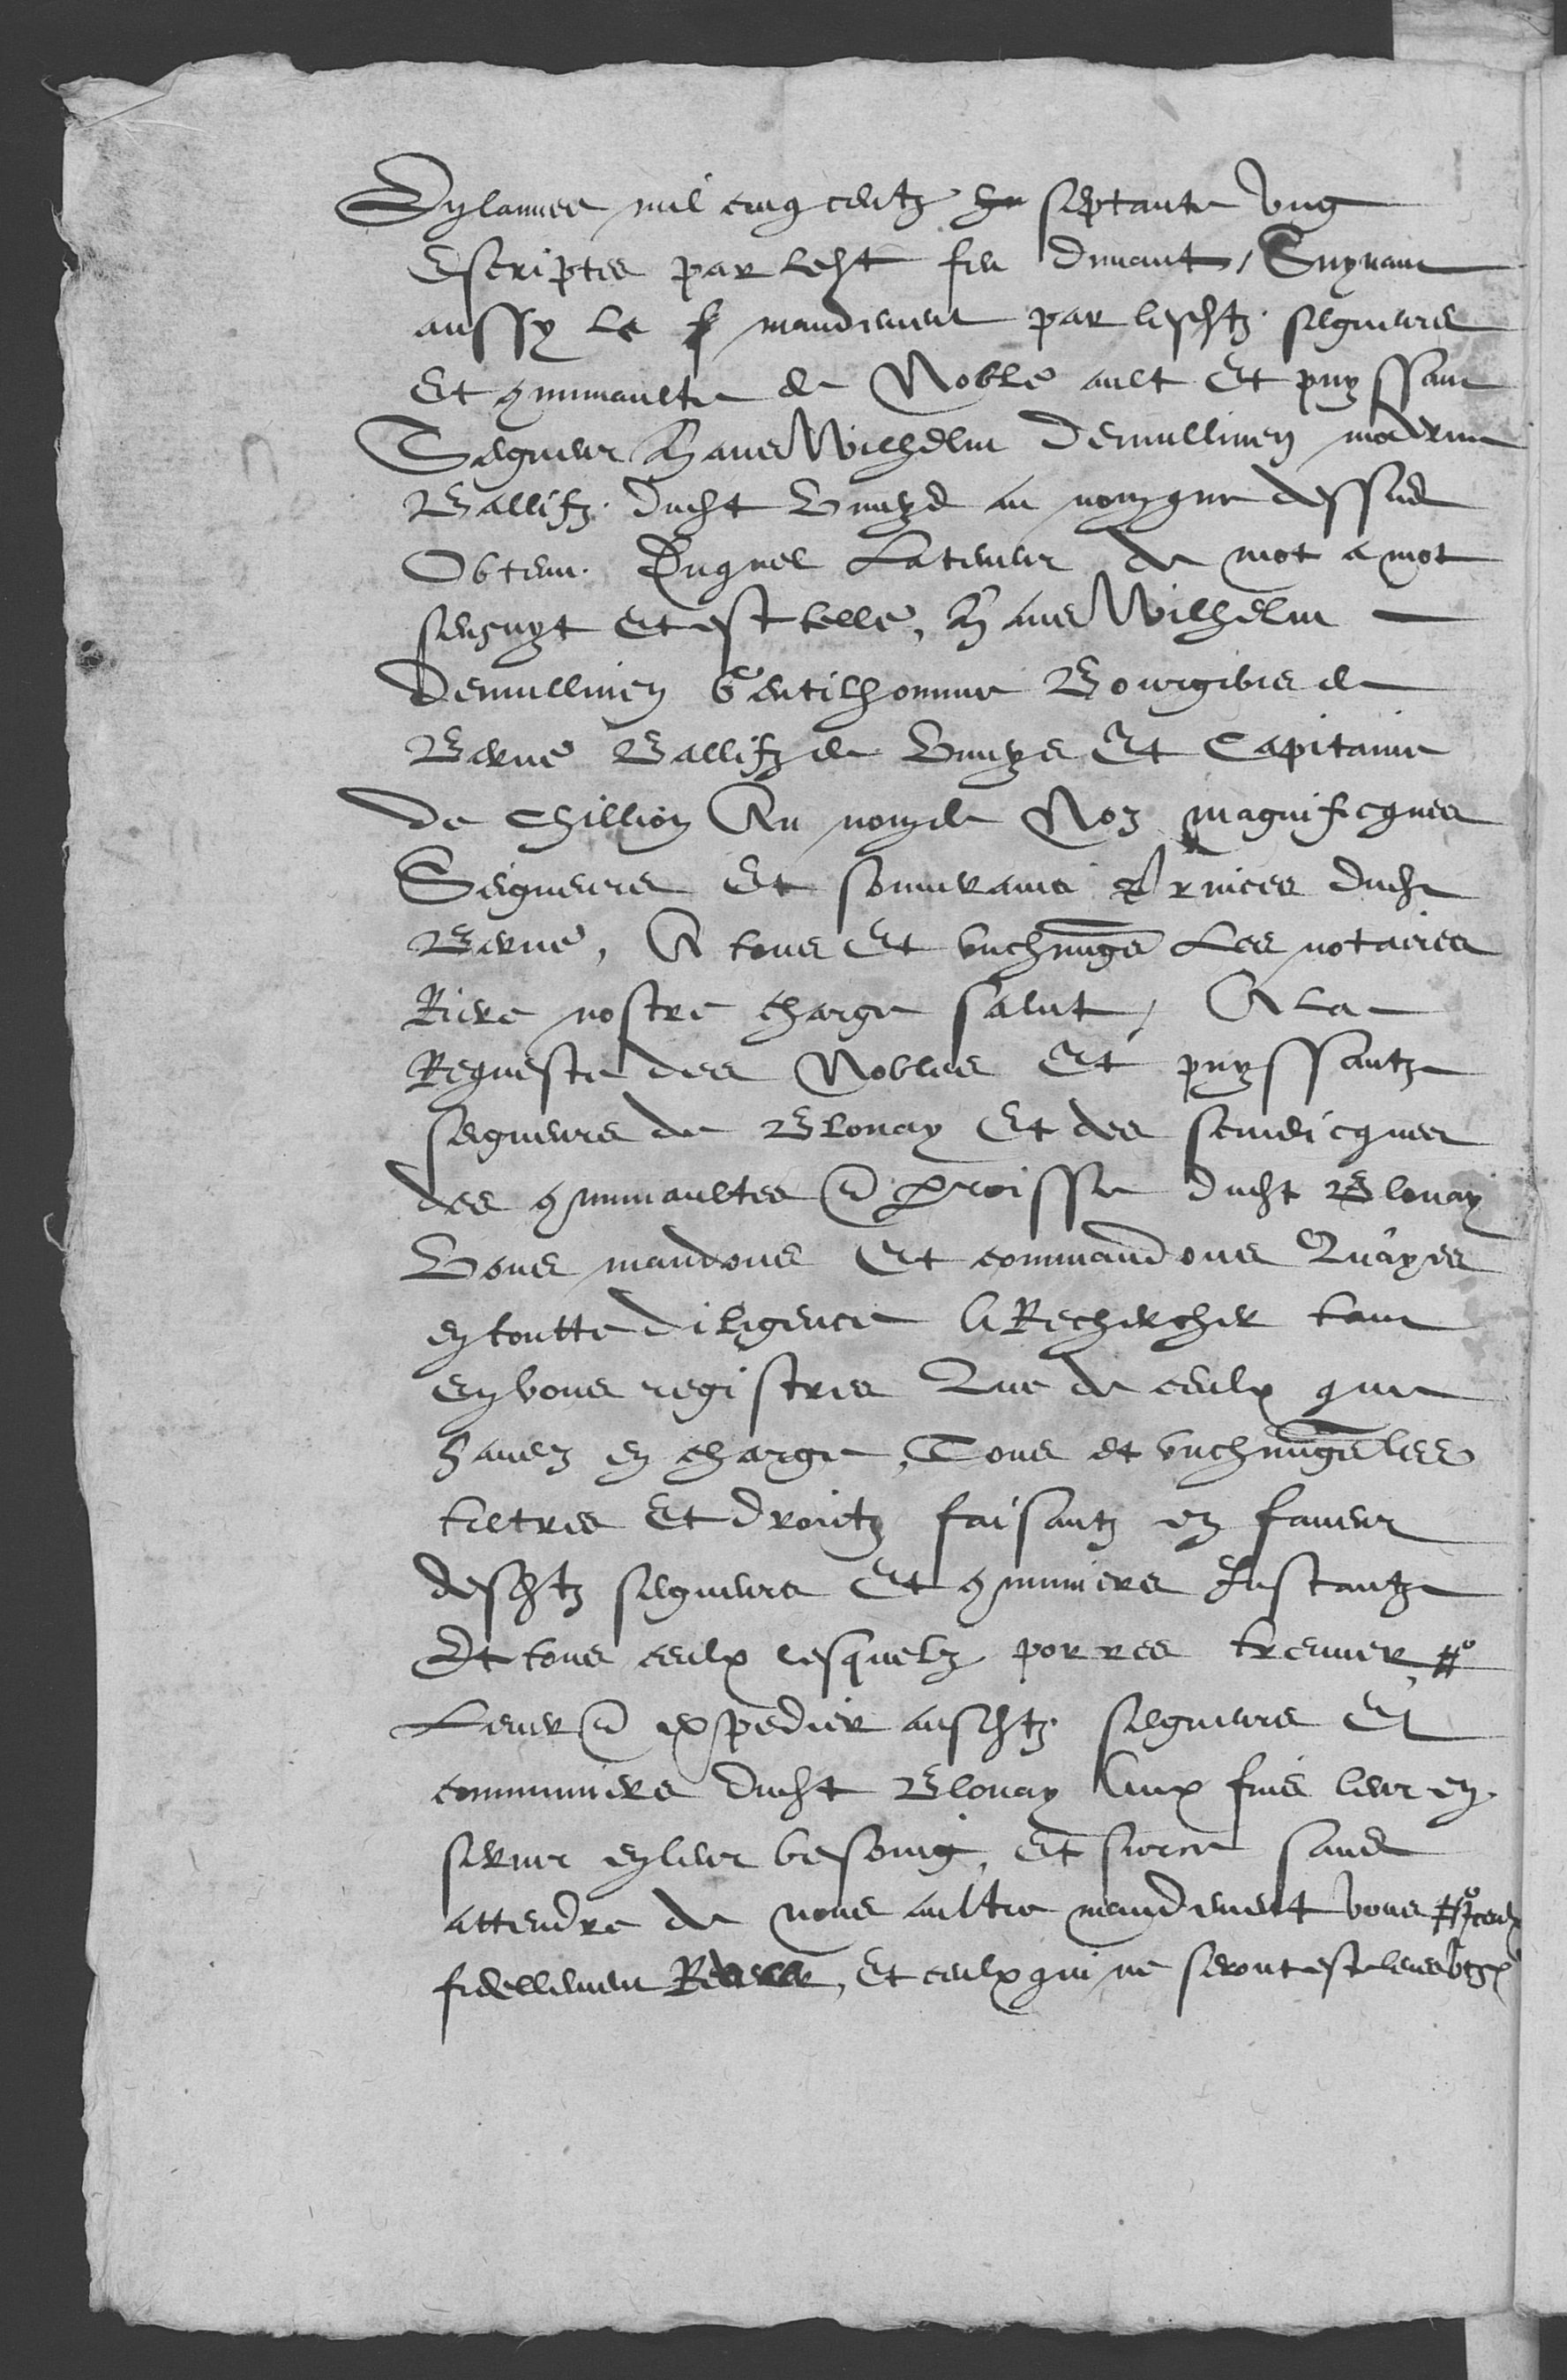 En lannee mil cinq centz septante ung
Escriptes par ledt feu dunant, Suyvant
aussy le mandement par lesdtz segneurs
Et communaulte de Noble ault Et puyssant
Segneur Hans Wilhelm Demullinen moderne
Ballifz dudt Vuuys au nom que dessus
Obtenu. Duquel La teneur de mot a mot
sensuyt Et est telle, Hans Wilhelm
Demullinen Gentilhomme Bourgeois de
Berne Ballifz de Vuuys Et Capitaine
de Chillion Au nom de Noz magnificques
Seigneurs Et souverains princes dudt
Berne, A tous Et ungchungs Les notaires
Riere nostre charge salut, A la
Requeste des Nobles Et puyssantz
segneurs de Blonay Et des scindicques
des communaultes et perroisse dudt Blonay
Vous mandons Et commandons Quayes
en toutte diligence A Rechercher tant
en vous registres Que de ceulx que
havez en charge, Tous et ungchungs les
tiltres Et droictz faisantz en faveur
desdtz segneurs Et communiers Instantz
Et tous ceulx lesquelz porres treuver, #
Lever et expedier ausdtz segneurs Et
communiers dudt Blonay Aux fins leur en
servir en leur besoing, Et sur ce sans
attendre de nous aultre mandement vous # iceulx
fidellement, Et ceulx qui ne seront este leves